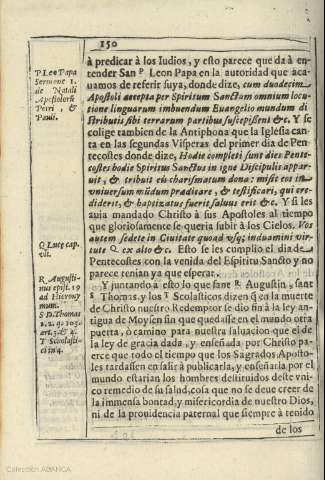 150
à predicar à los Iudios, y esto parece que da à en-
tender San P Leon Papa en la autoridad que aca-
uamos de referir suya, donde dize, cum duodecim
Apostoli accepta per Spiritum Sanctum omnium locu-
tione linguarum imbuendum Euangelio mundum di
stributis sibi terrarum partibus suscepissent &c. Y se
colige tambien de la Antiphona que la Iglesia can-
ta en las segundas Visperas del primer dia de Pen-
tecostes donde dize, Hodie completi sunt dies Pente-
costes hodie Spiritus Sanctus in igne Discipulis appar-
uit, & tribuit eis charismatum dona: misit eos in
vniuersum mũdum praedicare, & testificari, qui cre-
diderit, & baptizatus fuerit saluus erit &c. Y si les
auia mandado Christo à sus Apostoles al tiempo
que gloriosamente se queria subir à los Cielos. Vos
autem sedete in Ciuitate quoad vsq; induamini vir-
tute Q ex alto &c. Esto se les cumplio el dia de
Pentecostes con la venida del Espiritu Sancto y no
parece tenian ya que esperar.
Y juntando à esto lo que sant R Augustin, sant
S Thomas, y los T Scolasticos dizen q̃ en la muerte
de Christo nuestro Redemptor se dio fin à la ley an-
tigua de Moysen sin que quedasse en el mundo otra
puerta, ò camino para nuestra saluacion que el de
la ley de gracia dada, y enseñada por Christo pa-
erce que todo el tiempo que los Sagrados Aposto-
les tardassen en salir à publicarla, y enseñarla por el
mundo estarian los hombres destituidos deste vni-
co remedio de su salud, cosa que no se deue creer de
la immensa bontad, y misericordia de nuestro Dios,
ni de la prouidencia paternal que siempre à tenido
de los
P Leo Papa
Sermone 1.
de Natali
Apostolorũ
Petri, &
Pauli.
Q Lucę cap.
vlt.
R Augusti-
nus epist. 19
ad Hierony
mum.
S D. Thomas
T Scolasti-
Colección ABANCA